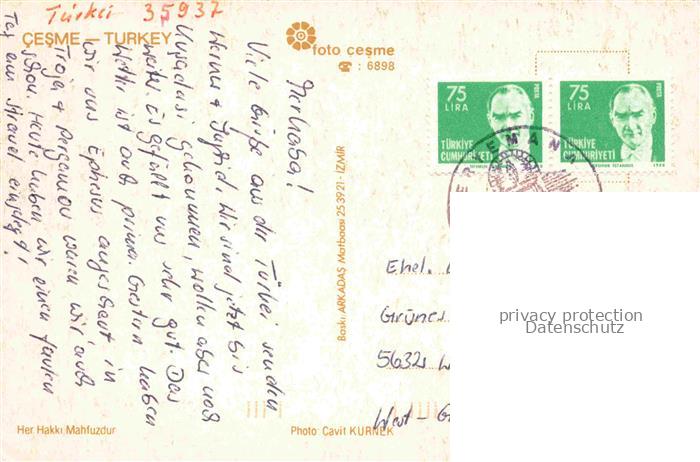 Türkei 35937
ÇEŞME – TURKEY
foto ceşme
☎ : 6898
75
LİRA
POSTA
TÜRKİYE
CUMHURİYETİ
75
LİRA
POSTA
TÜRKİYE
CUMHURİYETİ
Merhaba!
Viele Grüße aus der Türkei senden
Werner + Wir sind jetzt bis
Kuşadasi gekommen, wollen aber noch
weiter. Es gefällt uns sehr gut. Das
Wetter ist auch prima. Gestern haben
wir uns Ephesus angeschaut in
Troja + Pergamon waren wir auch
schon. Heute haben wir einen faulen
Tag am Strand eingelegt!
Baskı: ARKADAŞ Matbaası 25 39 21 - İZMİR
Ehel.
Grünes
5632
West – G
privacy protection
Datenschutz
Her Hakkı Mahfuzdur
Photo: Cavit KÜRNEK